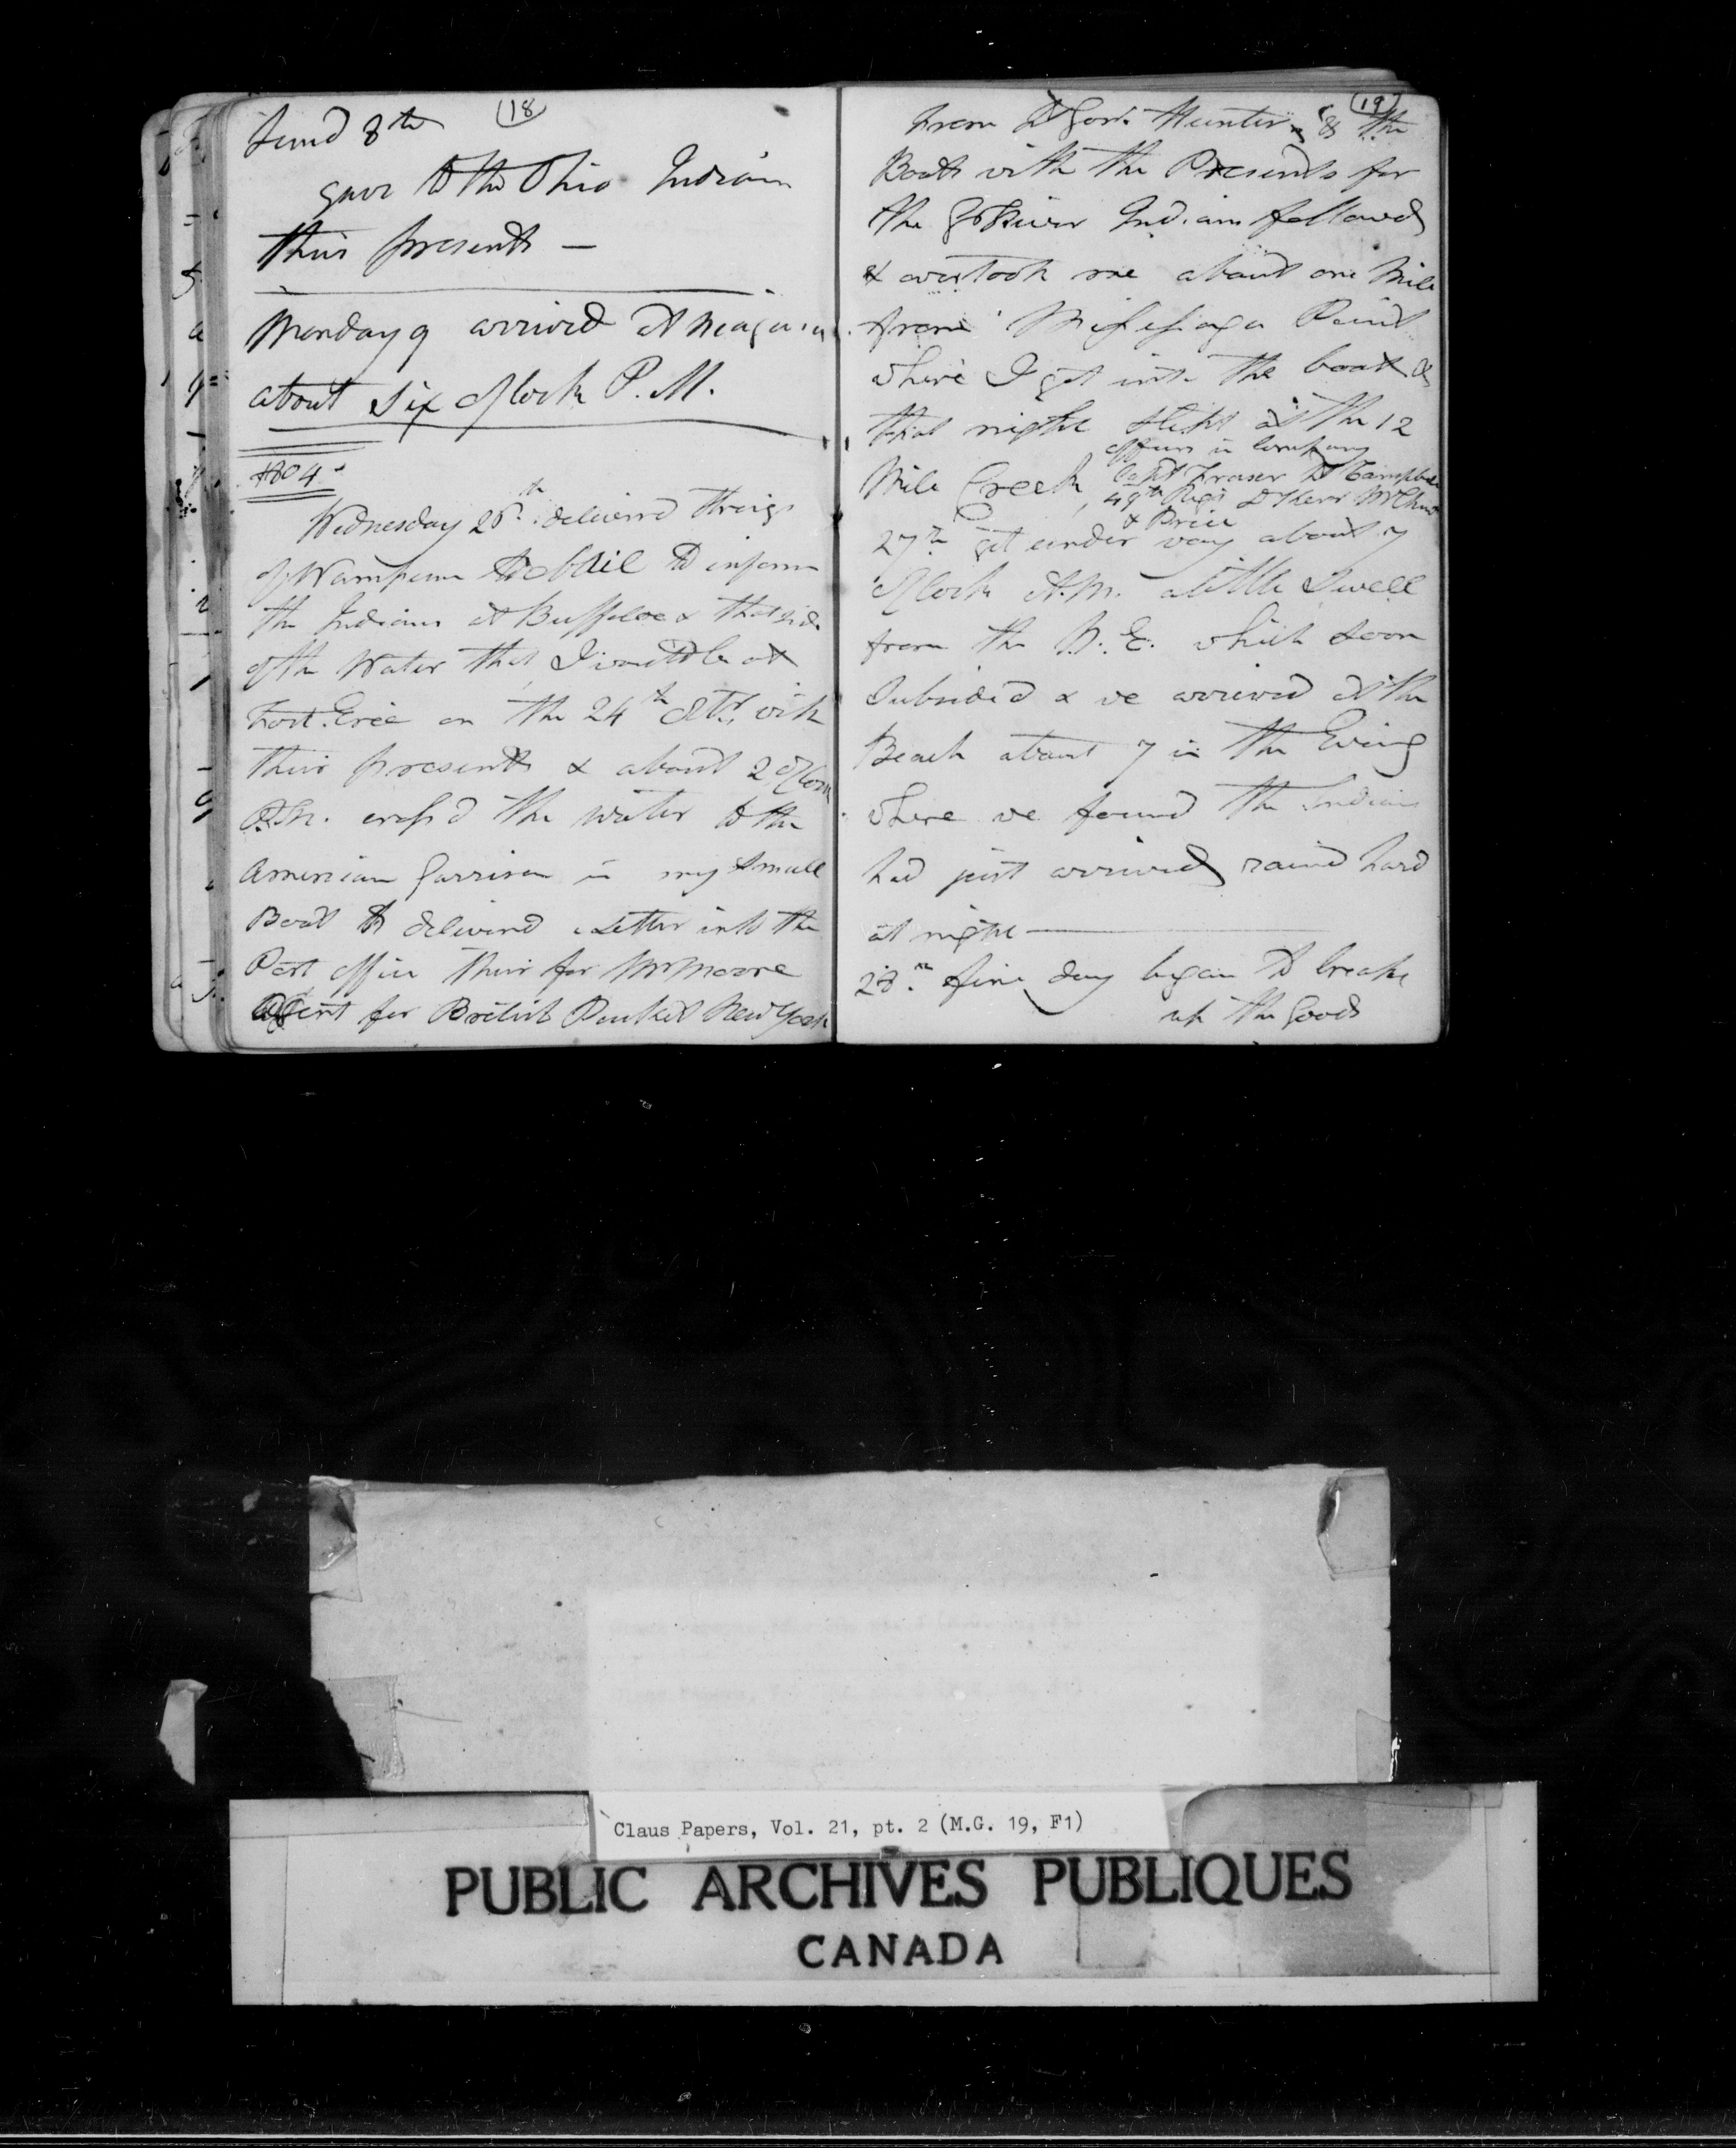 18
Sund 8th
gave to the Ohio Indians
their presents —
Monday 9 arrived at Niagara
about six oClock P.M.
1804
Wednesday 26th delivered strings
of Wampum to to inform
the Indians at Buffaloe & that side
of the Water that I would be at
Fort Erie on the 24th with
their presents & about 2 oClock
P.M. cross'd the water to the
American Garrison in my small
Boat & delivered a Letter into the
Post office their for Mr Moore
Agent for British Packet New York
19
from Lt Govr. Hunter, & the
Boats with the Presents for
the Gd River Indians followed
& overtook me about one Mile
from Missisaga Point
where I got into the boat &
that night slept at the 12
Mile Creek
officers in company
Capt Fraser Lt Campbell
49th Regt Dr Kerr
& Price
27th got under way about 7
oClock A.M. a little Swell
from the N.E. which soon
Subsided & we arrived at the
Beach about 7 in the Eving
where we found the Indians
had just arrived rained hard
at night —
28th fine day began to break
up the Goods
Claus Papers, Vol. 21, pt. 2 (M.G. 19, F1)
PUBLIC ARCHIVES PUBLIQUES
CANADA